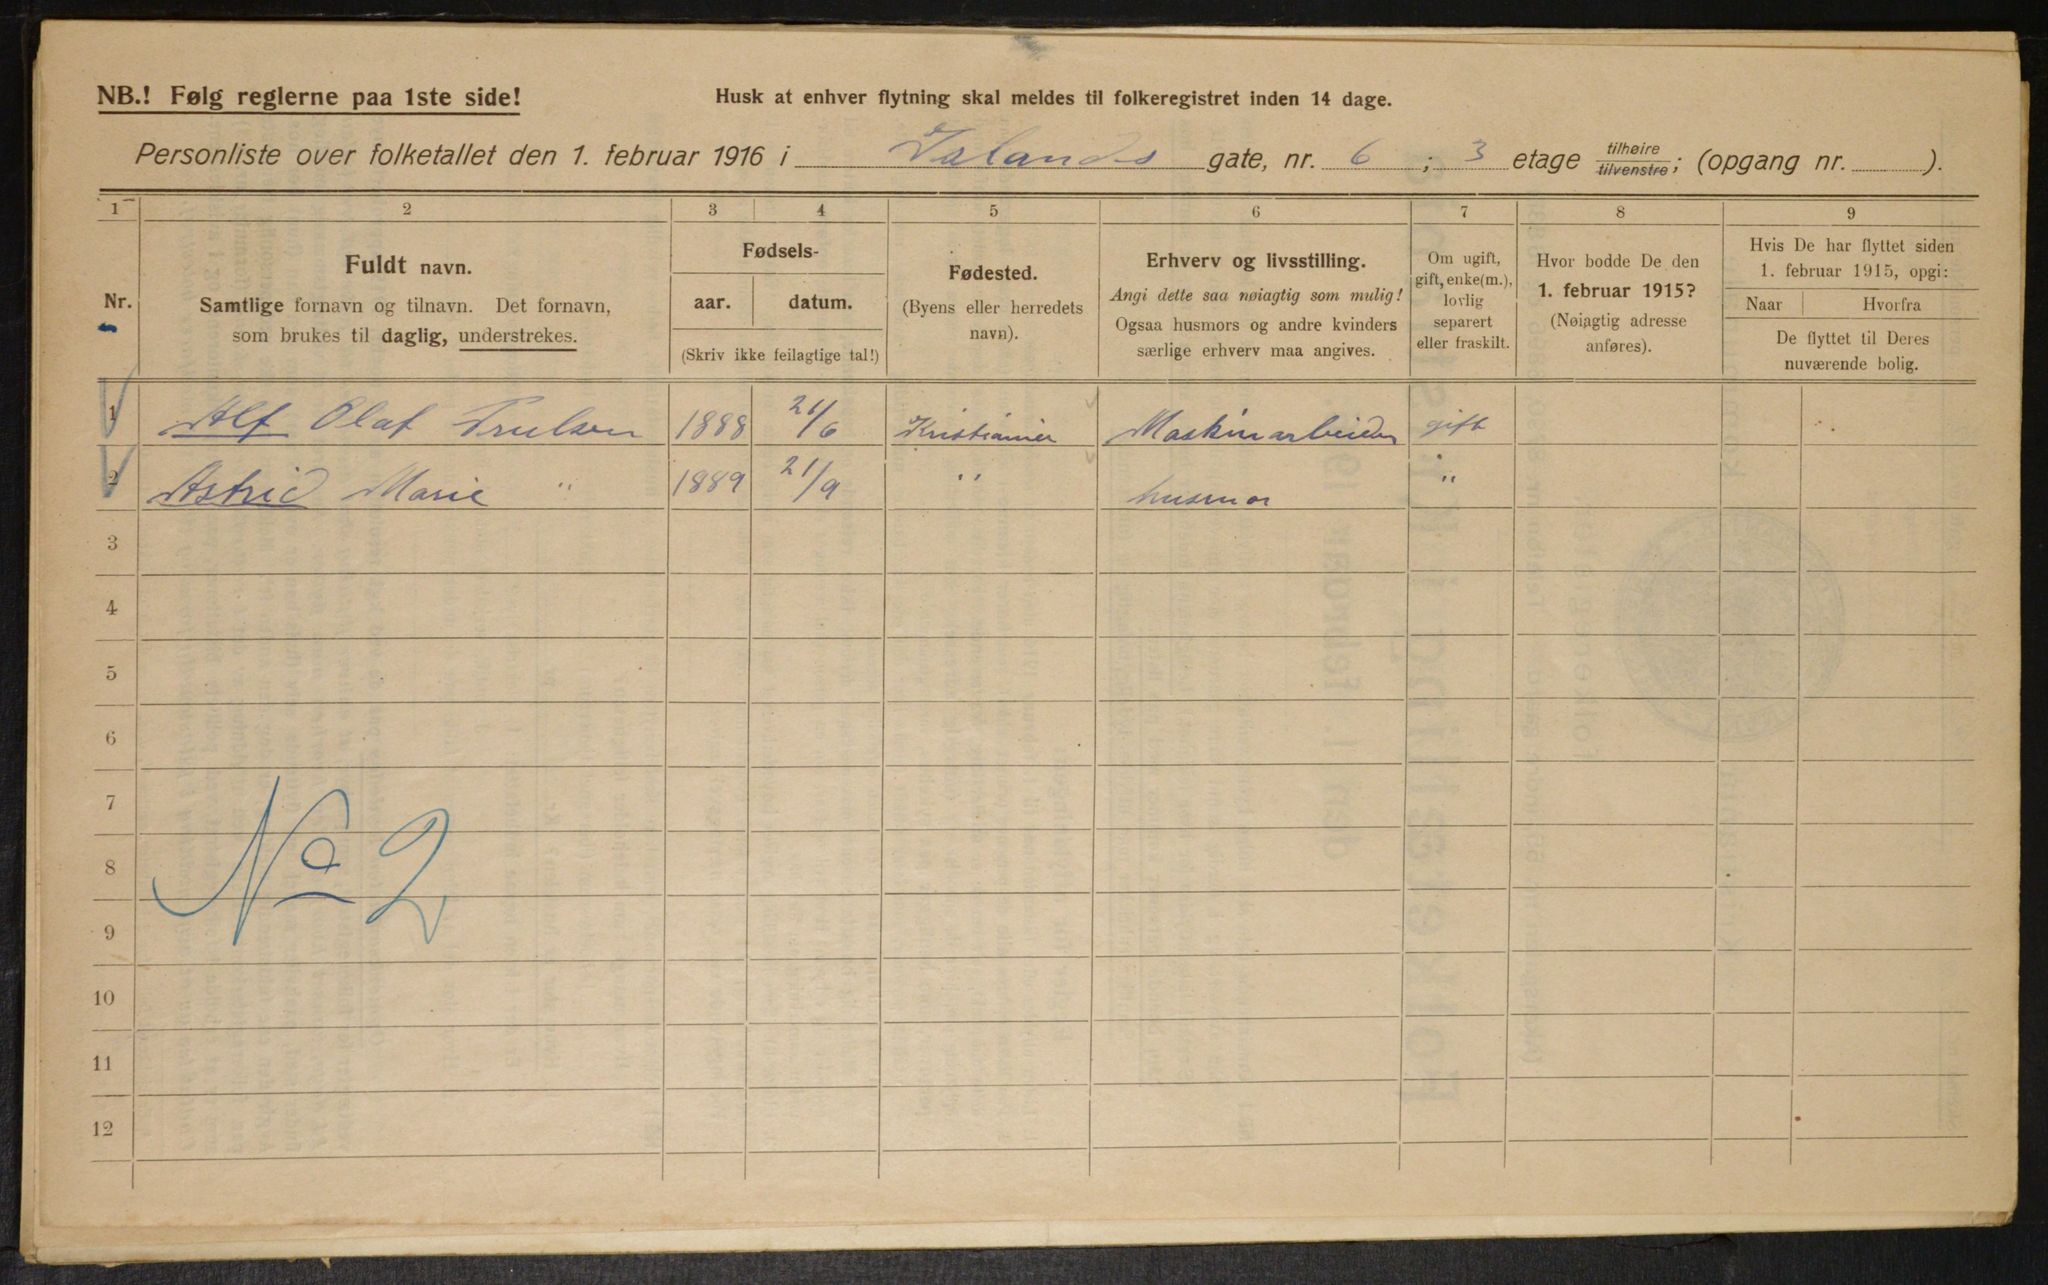 NB.! Følg reglerne paa 1ste side!
Husk at enhver flytning skal meldes til folkeregistret inden 14 dage.
Personliste over folketallet den 1. februar 1916 i Islands gate, nr. 6 ; 3 etage tilhøire / tilvenstre; (opgang nr. ).
1 2 3 4 5 6 7 8 9
Nr.
Fuldt navn.
Samtlige fornavn og tilnavn. Det fornavn,
som brukes til daglig, understrekes.
Fødsels-
aar. datum.
(Skriv ikke feilagtige tal!)
Fødested.
(Byens eller herredets
navn).
Erhverv og livsstilling.
Angi dette saa nøiagtig som mulig!
Ogsaa husmors og andre kvinders
særlige erhverv maa angives.
Om ugift,
gift, enke(m.),
lovlig
separert
eller fraskilt.
Hvor bodde De den
1. februar 1915?
(Nøiagtig adresse
anføres).
Hvis De har flyttet siden
1. februar 1915, opgi:
Naar Hvorfra
De flyttet til Deres
nuværende bolig.
1 Alf Olaf Trulsen 1888 21/6 Kristiania Maskinarbeider gift
2 Astrid Marie " 1889 21/9 " husmor "
3
4
5
6
7
8
9
10
11
12
No 2